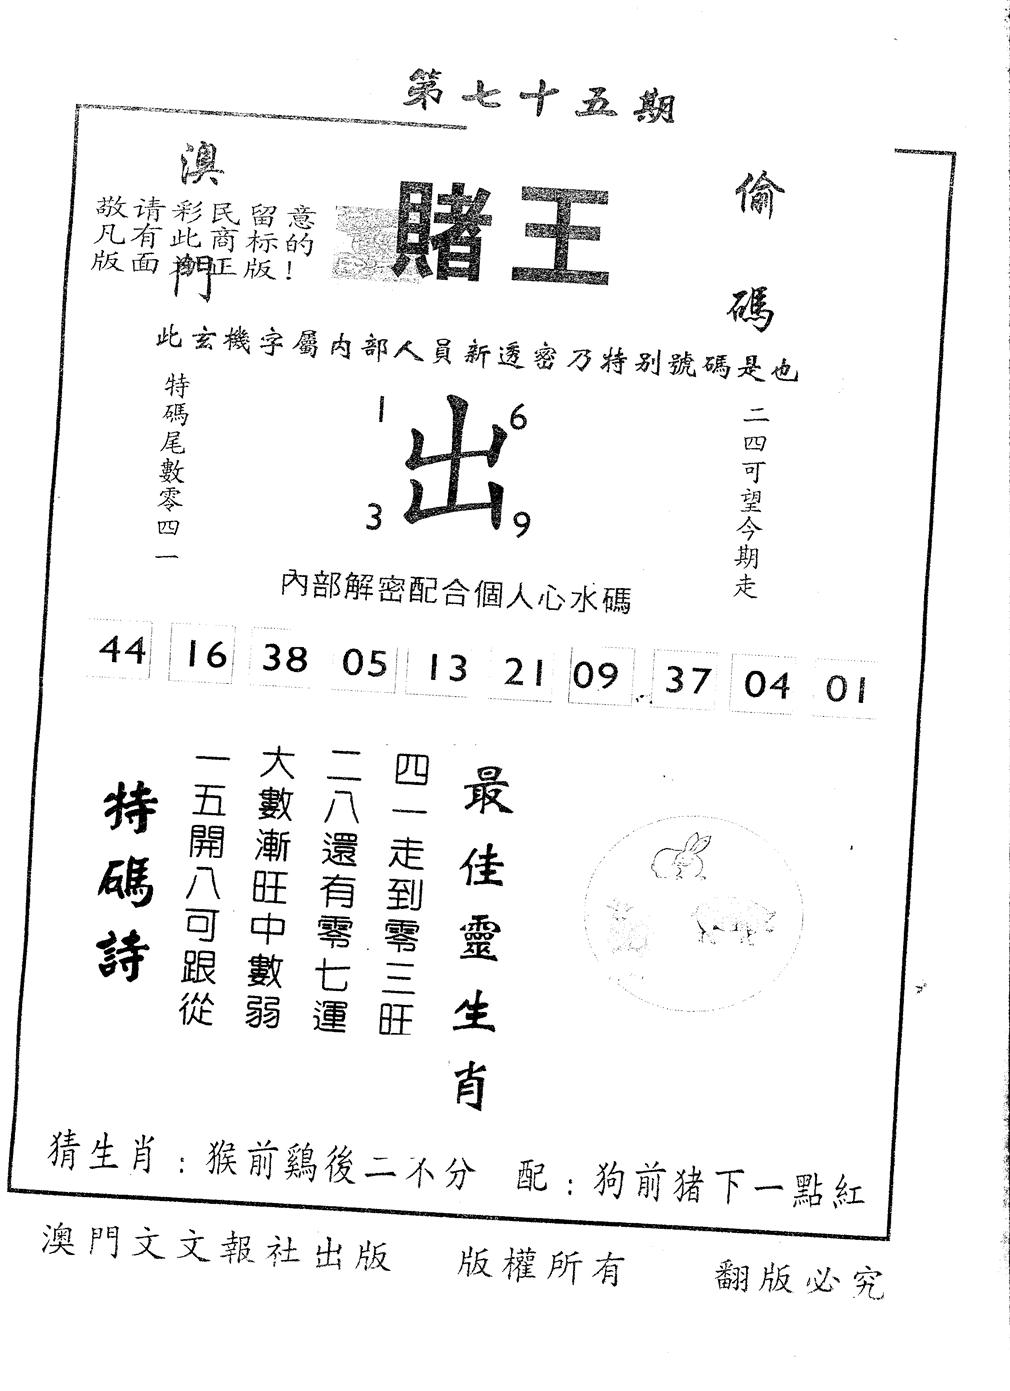 第七十五期
澳門
賭王
偷碼
敬请彩民留意
凡有此商标的
版面為正版!
此玄機字屬内部人員新透密乃特别號碼是也
特碼尾數零四一
1
6
出
3
9
二四可望今期走
內部解密配合個人心水碼
44 16 38 05 13 21 09 37 04 01
最佳靈生肖
四一走到零三旺
二八還有零七運
大數漸旺中數弱
一五開八可跟從
特碼詩
猜生肖:猴前鷄後二不分 配:狗前猪下一點紅
澳門文文報社出版 版權所有 翻版必究